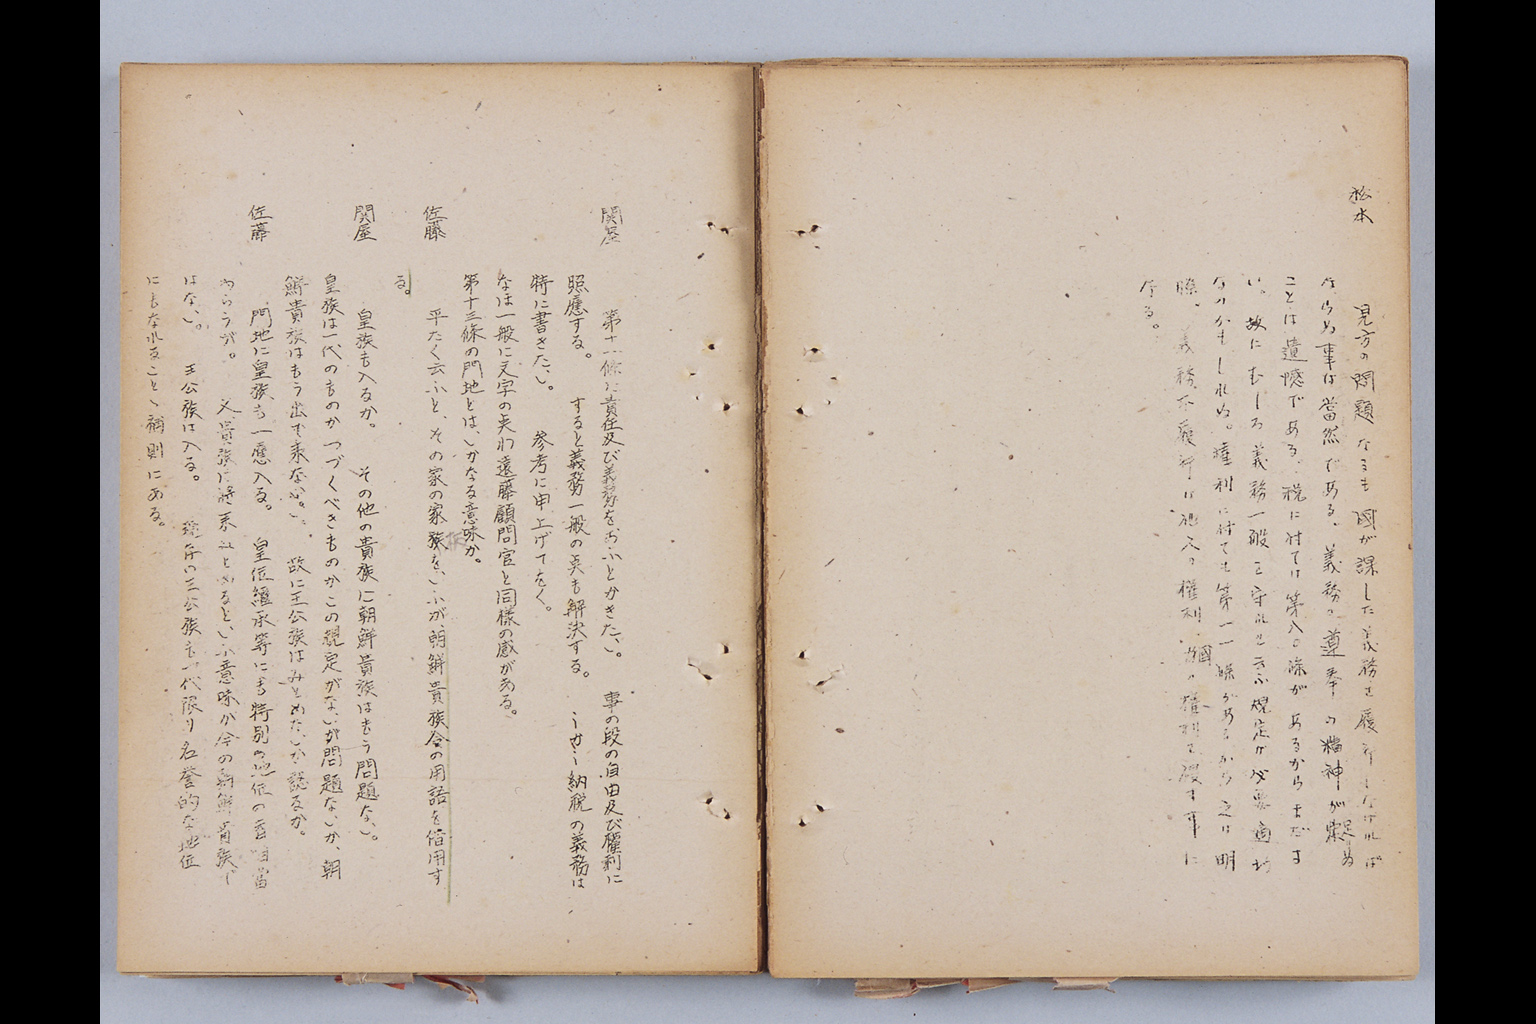 松本
見方の問題なるも國が課した義務を履行しなければ
ならぬ事は當然である。義務の遵奉の精神が足りぬ
ことは遺憾である、税に付ては第八〇條があるからまだよ
い。故にむしろ義務一般を守れと云ふ規定が必要適切
なのかもしれぬ。權利に付ても第一一條があるから之は明
瞭。義務不履行は他人の權利、國の權利を侵す事に
なる。
関屋
第十一條に責任及び義務をおふとかきたい。事の段の自由及び權利に
照應する。すると義務一般の点も解決する。納税の義務は
特に書きたい。参考に申上げてをく。
なほ一般に文字の点は遠藤顧問官と同様の感がある。
第十三條の門地とは、いかなる意味か。
佐藤
平たく云ふと、その家の家族をいふが、朝鮮貴族令の用語を借用す
る。
関屋
皇族も入るか。その他の貴族に朝鮮貴族はもう問題ない。
皇族は一代のものかつづくべきものかこの規定がないが問題ないか、朝
鮮貴族はもう出て来ない。故に王公族はみとめたいが誤るか。
佐藤
門地に皇族も一應入る。皇位繼承等にも特別の地位の
あらうが。又、貴族は將來みとめるといふ意味が今の朝鮮貴族で
はない。王公族は入る。現存の王公族も一代限り名誉的な地位
にもなれること、補則にある。